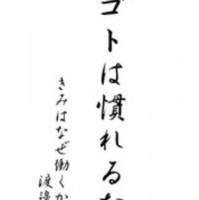 ゴトは慣れるな
きみはなぜ働くか
渡邉